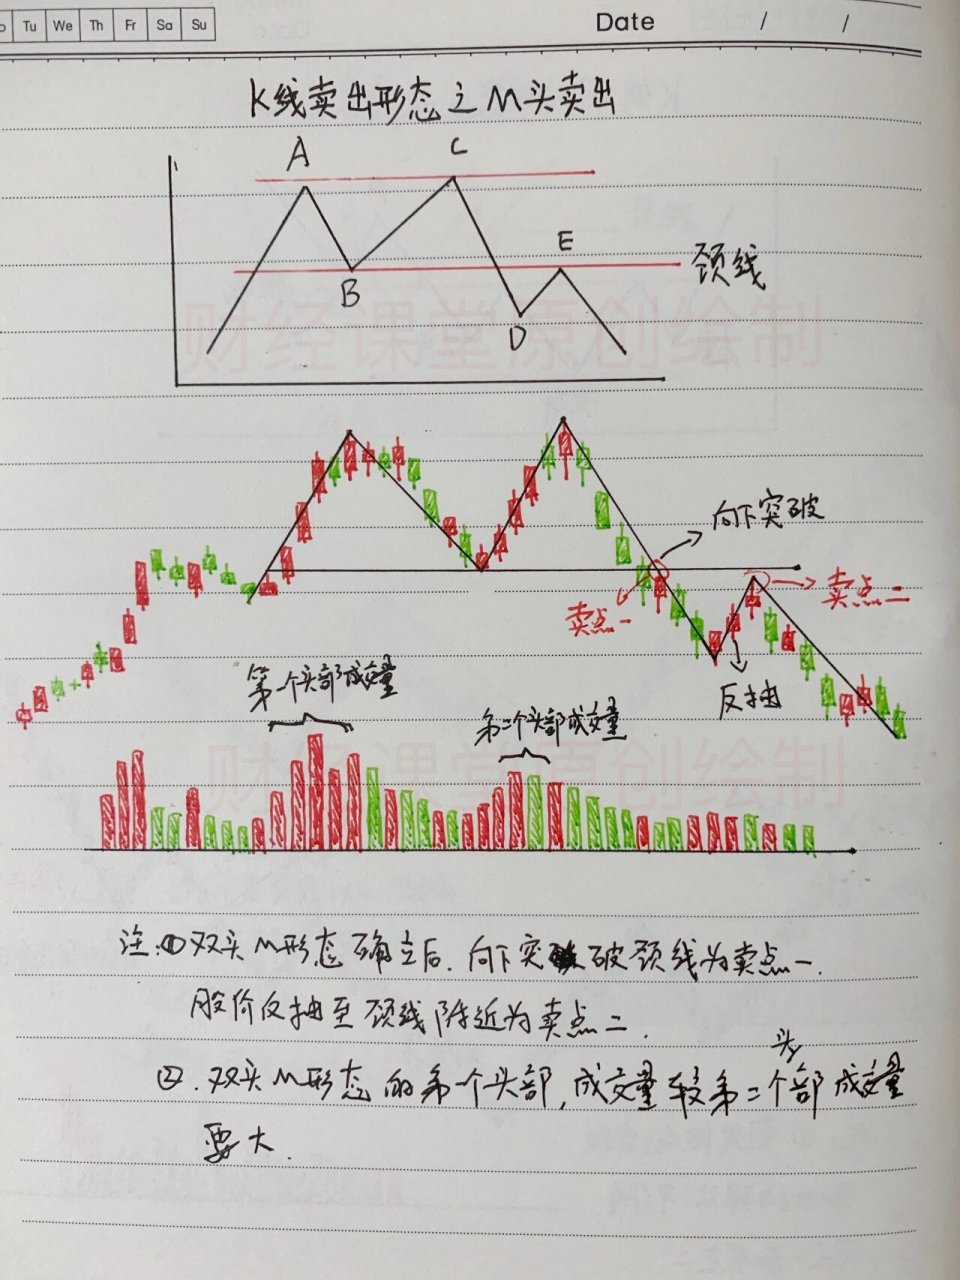 Tu We Th Fr Sa Su
Date / /
K线卖出形态之M头卖出
A
C
E
颈线
B
D
财经课堂原创绘制
向下突破
卖点一
卖点二
反抽
第一个头部成交量
第二个头部成交量
财经课堂原创绘制
注:①双头M形态确立后.向下突破颈线为卖点一.
股价反抽至颈线附近为卖点二.
②.双头M形态的第一个头部,成交量较第二个头部成交量
要大.